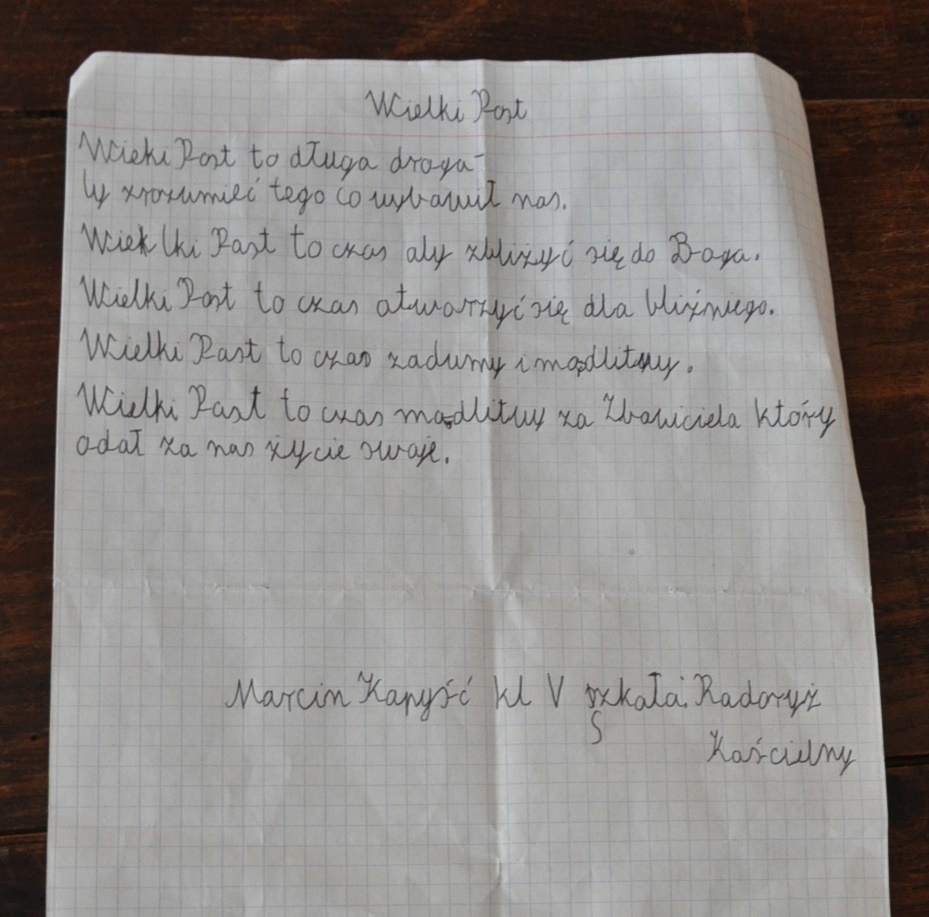 Wielki Post
Wieki Post to długa droga
by zrozumieć tego co wybawił nas.
Wiek lki Post to czas aby zbliżyć się do Boga.
Wielki Post to czas otworzyć się dla bliźniego.
Wielki Post to czas zadumy i modlitwy.
Wielki Post to czas modlitwy za Zbawiciela który
odał za nas życie swoje.
Marcin Kapyść kl V szkoła Radoryż
S
Kościelny